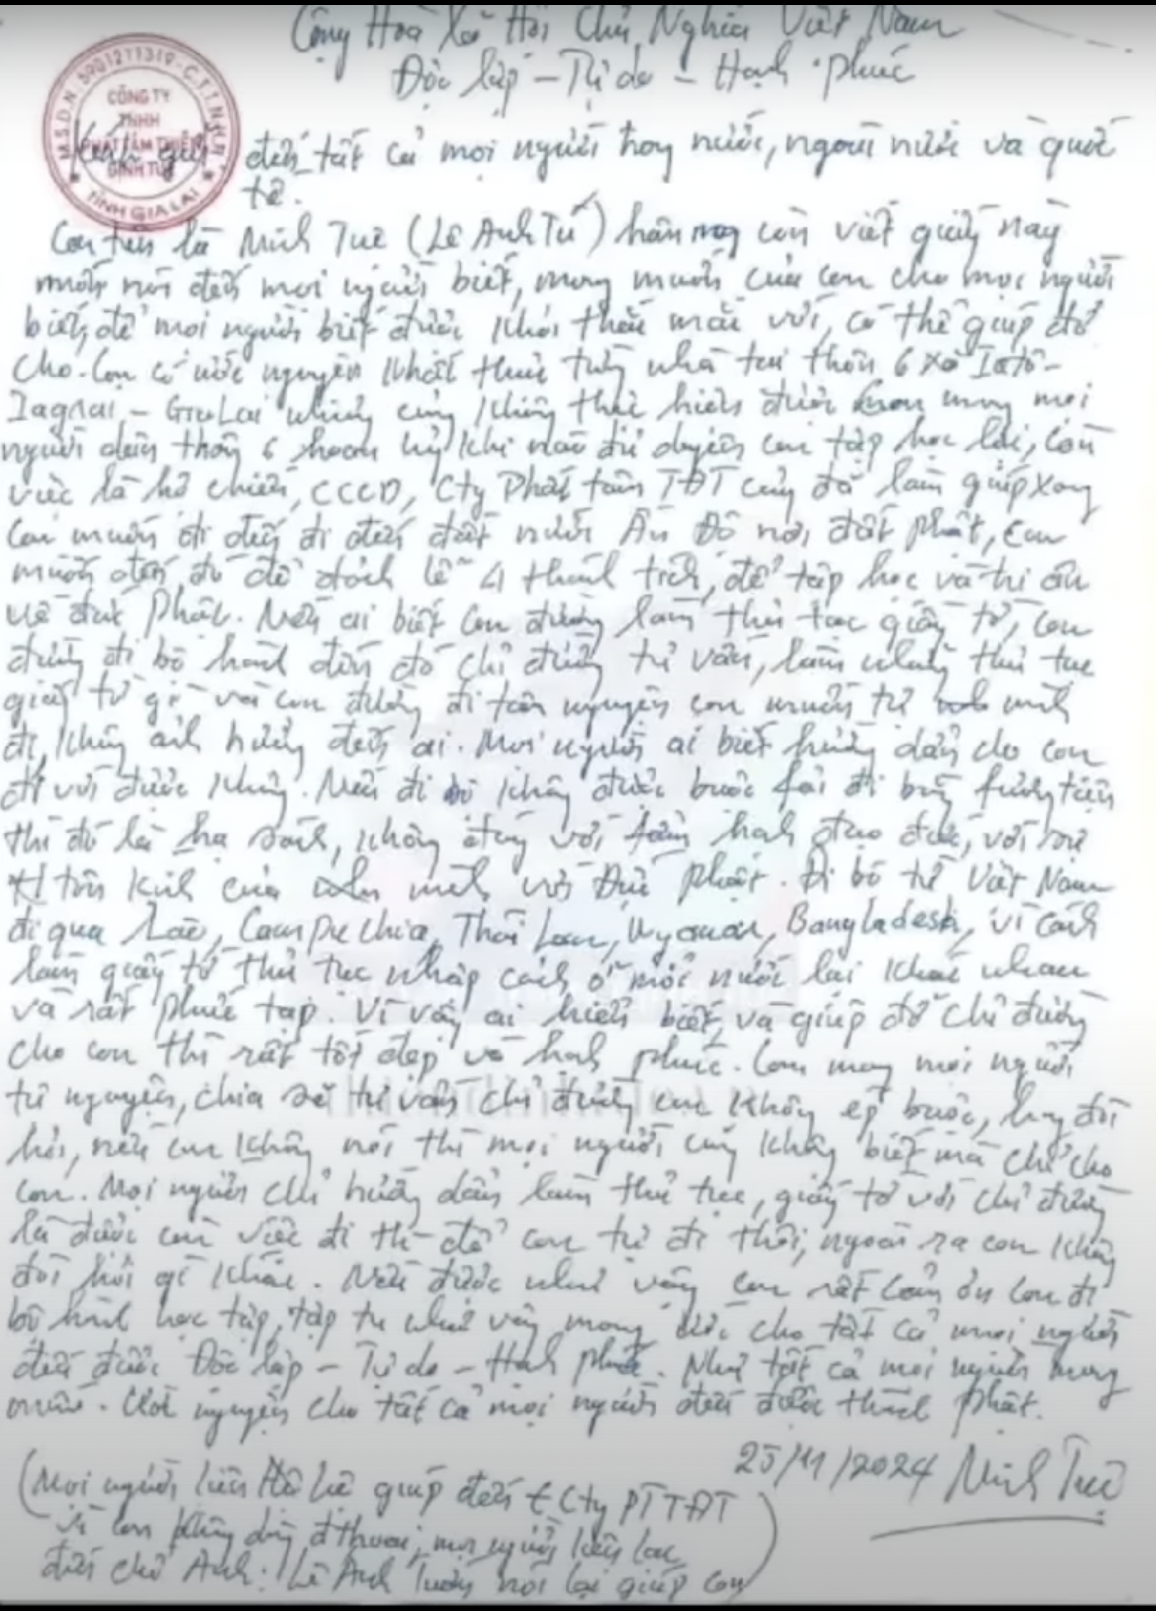 Cộng Hoà Xã Hội Chủ Nghĩa Việt Nam
Độc lập - Tự do - Hạnh phúc
M.S.D.N: 5901211319 - C.T.T.N.H.H
CÔNG TY
TNHH
ĐỊNH TUỆ
TỈNH GIA LAI
Kính gửi đến tất cả mọi người trong nước, ngoài nước và quốc
tế.
Con tên là Minh Tuệ (Lê Anh Tú) hôm nay con viết giấy này
muốn nói đến mọi người biết, mong muốn của con cho mọi người
biết, để mọi người biết được khỏi thắc mắc với, có thể giúp đỡ
cho. Con có ước nguyện khất thực từng nhà tại thôn 6 xã Iatô -
Iagrai - Gia Lai nhưng cũng không thực hiện được mong mọi
người dân thôn 6 hoan hỷ khi nào đủ duyên con tập học lại, còn
việc là hộ chiếu, CCCD, Cty Phát tâm TĐT cũng đã làm giúp xong
Con muốn đi đến đi đến đất nước Ấn Độ nơi đất Phật, con
muốn đến đó để đảnh lễ 4 thánh tích, để tập học và tri ân
về đức Phật. Nếu ai biết con đường làm thủ tục giấy tờ, con
đường đi bộ hành đến đó chỉ đường tư vấn, làm những thủ tục
giấy tờ gì và con đường đi tâm nguyện con muốn tự mình
đi, không ảnh hưởng đến ai. Mọi người ai biết hướng dẫn cho con
đi với được không. Nếu đi bộ không được buộc fải đi bằng fương tiện
thì đó là hạ sách, không đúng với fẩm hạnh đạo đức, với sự
tôn kính của mình với Đức Phật. Đi bộ từ Việt Nam
đi qua Lào, Campuchia, Thái Lan, Myanmar, Bangladesh, vì cách
làm giấy tờ thủ tục nhập cảnh ở mỗi nước lại khác nhau
và rất phức tạp. Vì vậy ai hiểu biết, và giúp đỡ chỉ đường
cho con thì rất tốt đẹp và hạnh phúc. Con mong mọi người
tự nguyện, chia sẻ tư vấn chỉ đường con không ép buộc, hay đòi
hỏi, nếu con không nói thì mọi người cũng không biết mà chỉ cho
con. Mọi người chỉ hướng dẫn làm thủ tục, giấy tờ với chỉ đường
là được còn việc đi thì để con tự đi thôi, ngoài ra con không
đòi hỏi gì khác. Nếu được như vậy con rất cảm ơn con đi
bộ hành học tập, tập tu như vậy mong ước cho tất cả mọi người
đều được Độc lập - Tự do - Hạnh phúc. Như tất cả mọi người mong
muốn. Ước nguyện cho tất cả mọi người đều được thành Phật.
25/11/2024 Minh Tuệ
(Mọi người liên hệ giúp đến Cty PTTĐT
vì con không dùng đ.thoại, mọi người liên lạc
đến chỗ Anh: Lê Anh nói lại giúp con)